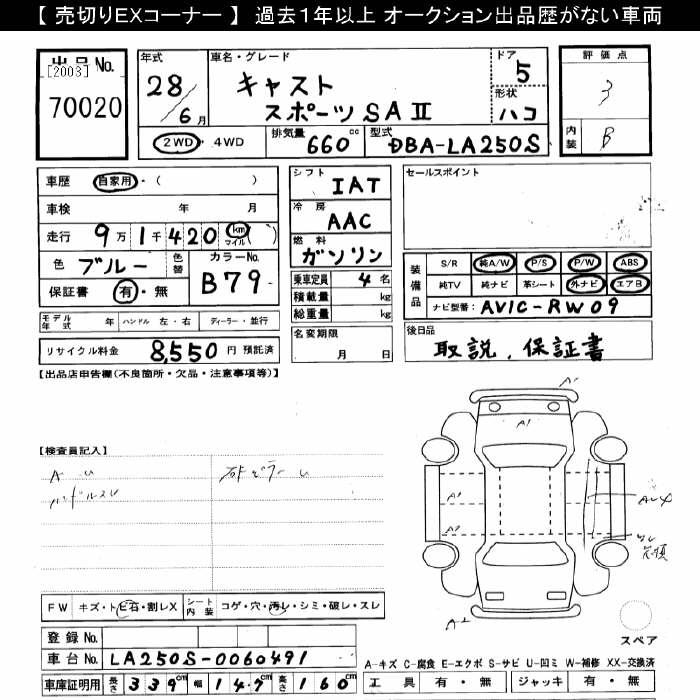 【 売切りEXコーナー 】 過去1年以上 オークション出品歴がない車両
出品No.
[2003]
70020
年式
28/6月
車名・グレード
キャスト
スポーツSAⅡ
ドア
5
形状
ハコ
評価点
3
内装
B
2WD・4WD
排気量
660cc
型式
DBA-LA250S
車歴 自家用・( )
車検 年 月
走行 9万1千420 km マイル( )
色 ブルー
色替
カラーNo.
B79
保証書 有・無
シフト
IAT
冷房
AAC
燃料
ガソリン
乗車定員 4名
積載量 kg
総重量 kg
セールスポイント
装備品
S/R 純A/W P/S P/W ABS
純TV 純ナビ 革シート 外ナビ エアB
ナビ型番: AVIC-RW09
モデル年式 年 ハンドル 左・右 ディーラー・並行
名変期限
月 日
後日品
取説、保証書
リサイクル料金 8,550円 預託済
【出品店申告欄(不良箇所・欠品・注意事項等)】
【検査員記入】
A U
ハンドルスレ
A1
A1
A1
A2
A2
FW キズ・トビ石・割レX
シート内装 コゲ・穴・汚レ・シミ・破レ・スレ
登録No.
車台No. LA250S-0060491
車庫証明用 長さ 339cm 幅 147cm 高さ 160cm
スペア
A-キズ C-腐食 E-エクボ S-サビ U-凹ミ W-補修 XX-交換済
工具 有・無 ジャッキ 有・無